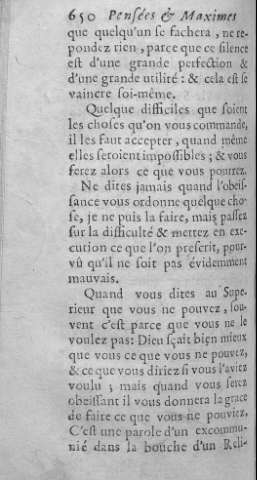 650 Pensées & Maximes
que quelqu'un se fachera, ne re-
pondez rien, parce que ce silence
est d'une grande perfection &
d'une grande utilité : & cela est se
vaincre soi-même.
Quelque difficiles que soient
les choses qu'on vous commande,
il les faut accepter, quand même
elles seroient impossibles ; & vous
ferez alors ce que vous pourrez.
Ne dites jamais quand l'obeis-
sance vous ordonne quelque cho-
se, je ne puis la faire, mais passez
sur la difficulté & mettez en exe-
cution ce que l'on prescrit, pour-
vû qu'il ne soit pas évidemment
mauvais.
Quand vous dites au Supe-
rieur que vous ne pouvez, sou-
vent c'est parce que vous ne le
voulez pas: Dieu sçait bien mieux
que vous ce que vous ne pouvez,
& ce que vous diriez si vous l'aviez
voulu ; mais quand vous serez
obeissant il vous donnera la grace
de faire ce que vous ne pouviez.
C'est une parole d'un excommu-
nié dans la bouche d'un Reli-